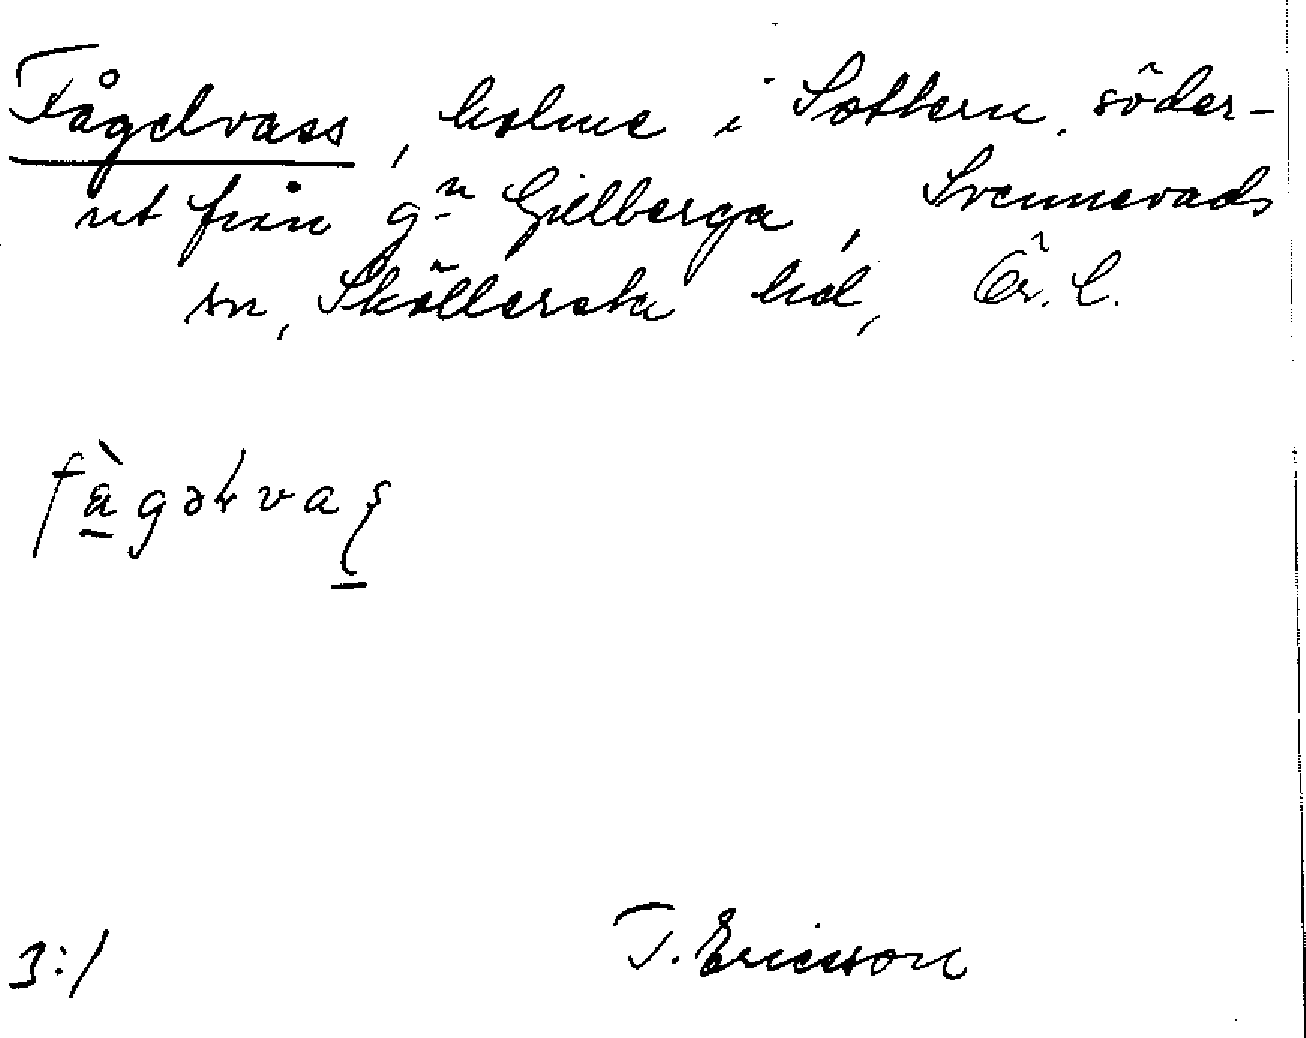 Fågelvass, holme i Sottern, söder-
ut från gn Gillberga, Svennevads
sn, Sköllersta hd, Ör. l.
fàgəɫvas
3:1
T. Ericsson